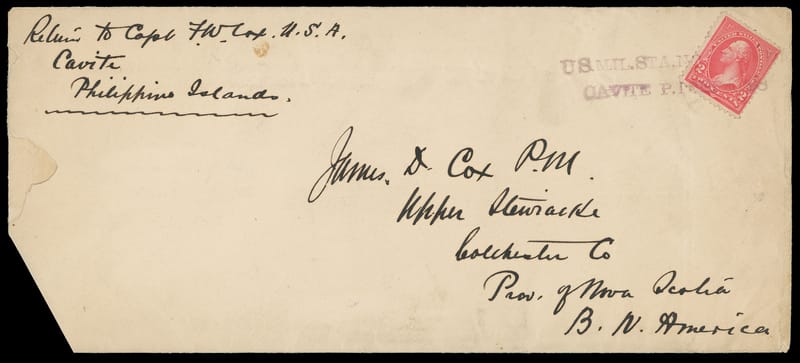 Return to Capt F. W. Cox. U. S. A.
Cavite
Philippine Islands.
US MIL. STA. N
CAVITE P. I
2 2
James. D. Cox P.M.
Upper Stewiacke
Colchester Co
Prov. of Nova Scotia
B. N. America